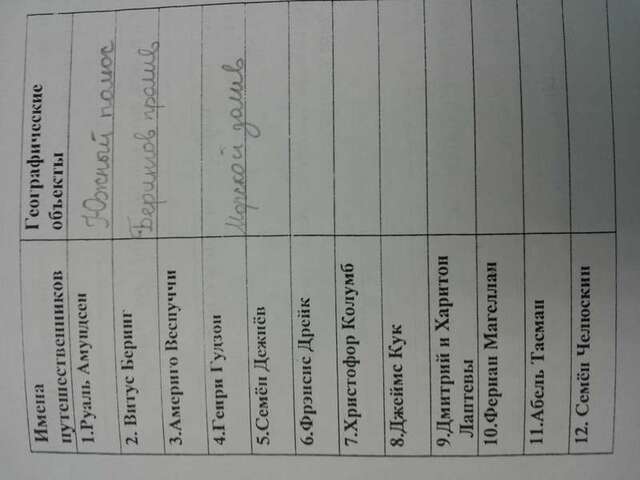 Имена
путешественников
Географические
объекты
1.Руаль Амундсен
Южный полюс
2. Витус Беринг
Берингов пролив
3.Америго Веспуччи
4.Генри Гудзон
Морской залив
5.Семён Дежнёв
6.Фрэнсис Дрейк
7.Христофор Колумб
8.Джеймс Кук
9.Дмитрий и Харитон
Лаптевы
10.Фернан Магеллан
11.Абель Тасман
12. Семён Челюскин